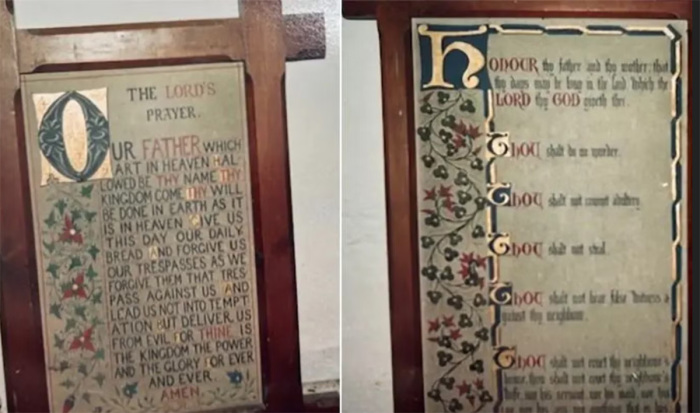 THE LORD'S
PRAYER.
OUR FATHER WHICH
ART IN HEAVEN HAL
LOWED BE THY NAME THY
KINGDOM COME THY WILL
BE DONE IN EARTH AS IT
IS IN HEAVEN GIVE US
THIS DAY OUR DAILY
BREAD AND FORGIVE US
OUR TRESPASSES AS WE
FORGIVE THEM THAT TRES
PASS AGAINST US AND
LEAD US NOT INTO TEMPT
ATION BUT DELIVER US
FROM EVIL FOR THINE IS
THE KINGDOM THE POWER
AND THE GLORY FOR EVER
AND EVER.
AMEN.
HONOUR thy father and thy mother: that
thy days may be long in the land which the
LORD thy GOD giveth thee.
Thou shalt do no murder.
Thou shalt not commit adultery.
Thou shalt not steal.
Thou shalt not bear false witness a
gainst thy neighbour.
Thou shalt not covet thy neighbour's
house, thou shalt not covet thy neighbour's
wife, nor his servant, nor his maid, nor his